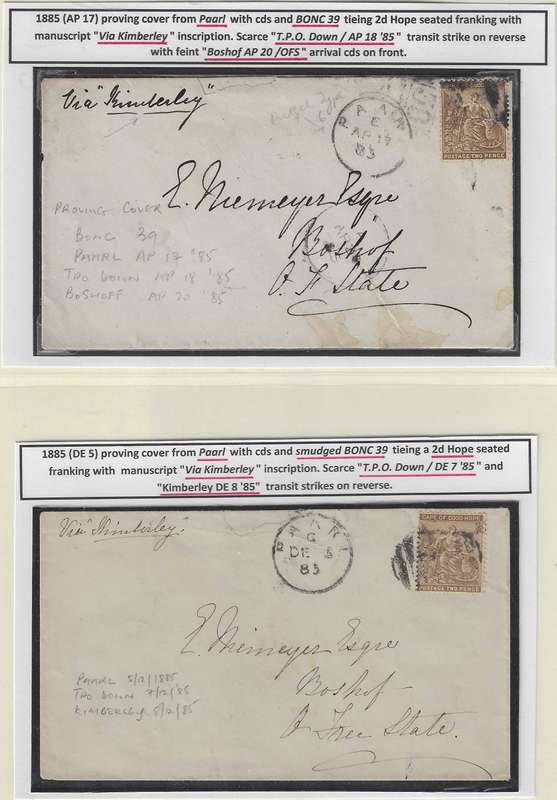 1885 (AP 17) proving cover from Paarl with cds and BONC 39 tieing 2d Hope seated franking with
manuscript "Via Kimberley" inscription. Scarce "T.P.O. Down / AP 18 '85" transit strike on reverse
with feint "Boshof AP 20 /OFS" arrival cds on front.
Via "Kimberley"
PAARL
E
AP 17
85
POSTAGE TWO PENCE
E. Niemeyer Esqre
Boshof
O. F. State
PROVING COVER
BONC 39
PAARL AP 17 '85
TPO DOWN AP 18 '85
BOSHOFF AP 20 '85
1885 (DE 5) proving cover from Paarl with cds and smudged BONC 39 tieing a 2d Hope seated
franking with manuscript "Via Kimberley" inscription. Scarce "T.P.O. Down / DE 7 '85" and
"Kimberley DE 8 '85" transit strikes on reverse.
Via "Kimberley"
PAARL
DE 5
85
CAPE OF GOOD HOPE
POSTAGE TWO PENCE
E. Niemeyer Esqre
Boshof
O. Free State.
PAARL 5/12/1885
TPO DOWN 7/12/85
KIMBERLEY 8/12/85